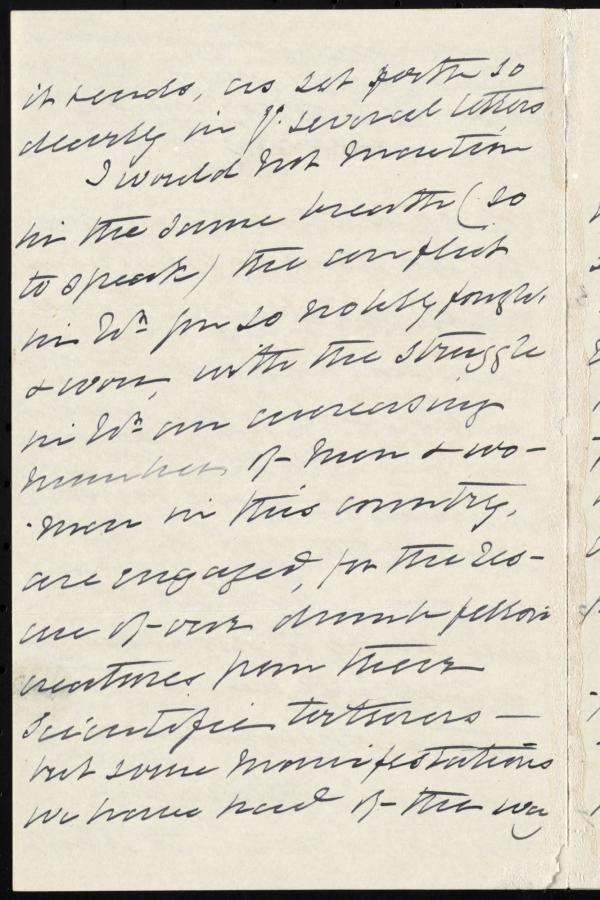 it tends, as set forth so
clearly in yr. several letters
I would not mention
in the same breath (so
to speak) the conflict
in Wh. you so nobly fought
& won, with the struggle
in Wh. an increasing
number of men & wo-
men in this country,
are engaged, for the res-
cue of our dumb fellow
creatures from their
Scientific torturers —
but some manifestations
we have had of the way